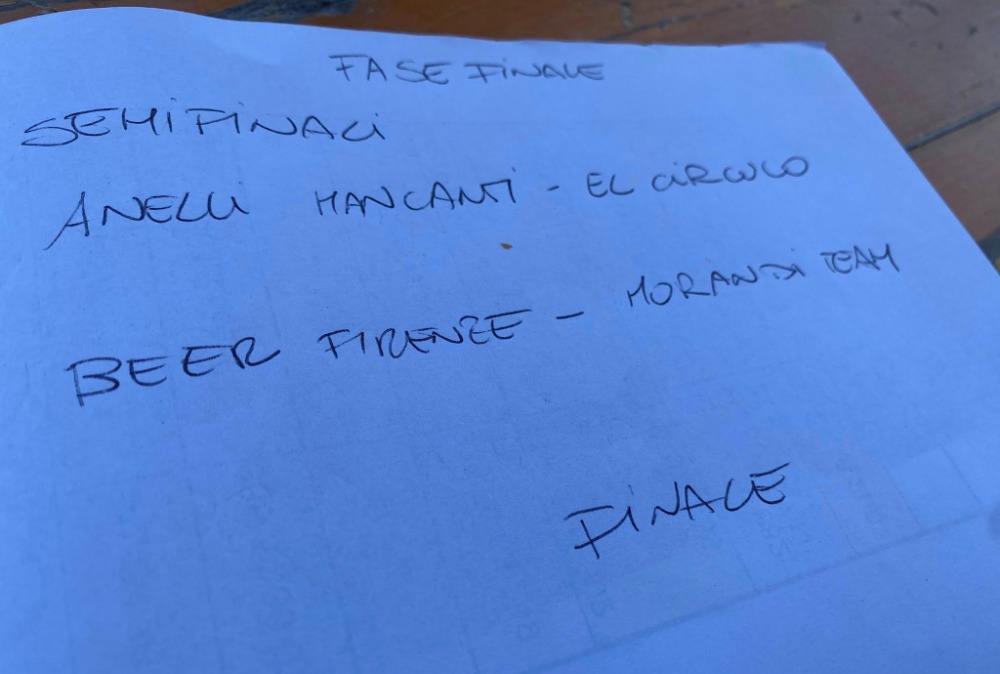 FASE FINALE
SEMIFINALI
ANELLI MANCANTI - EL CIRCULO
BEER FIRENZE - MORANDI TEAM
FINALE